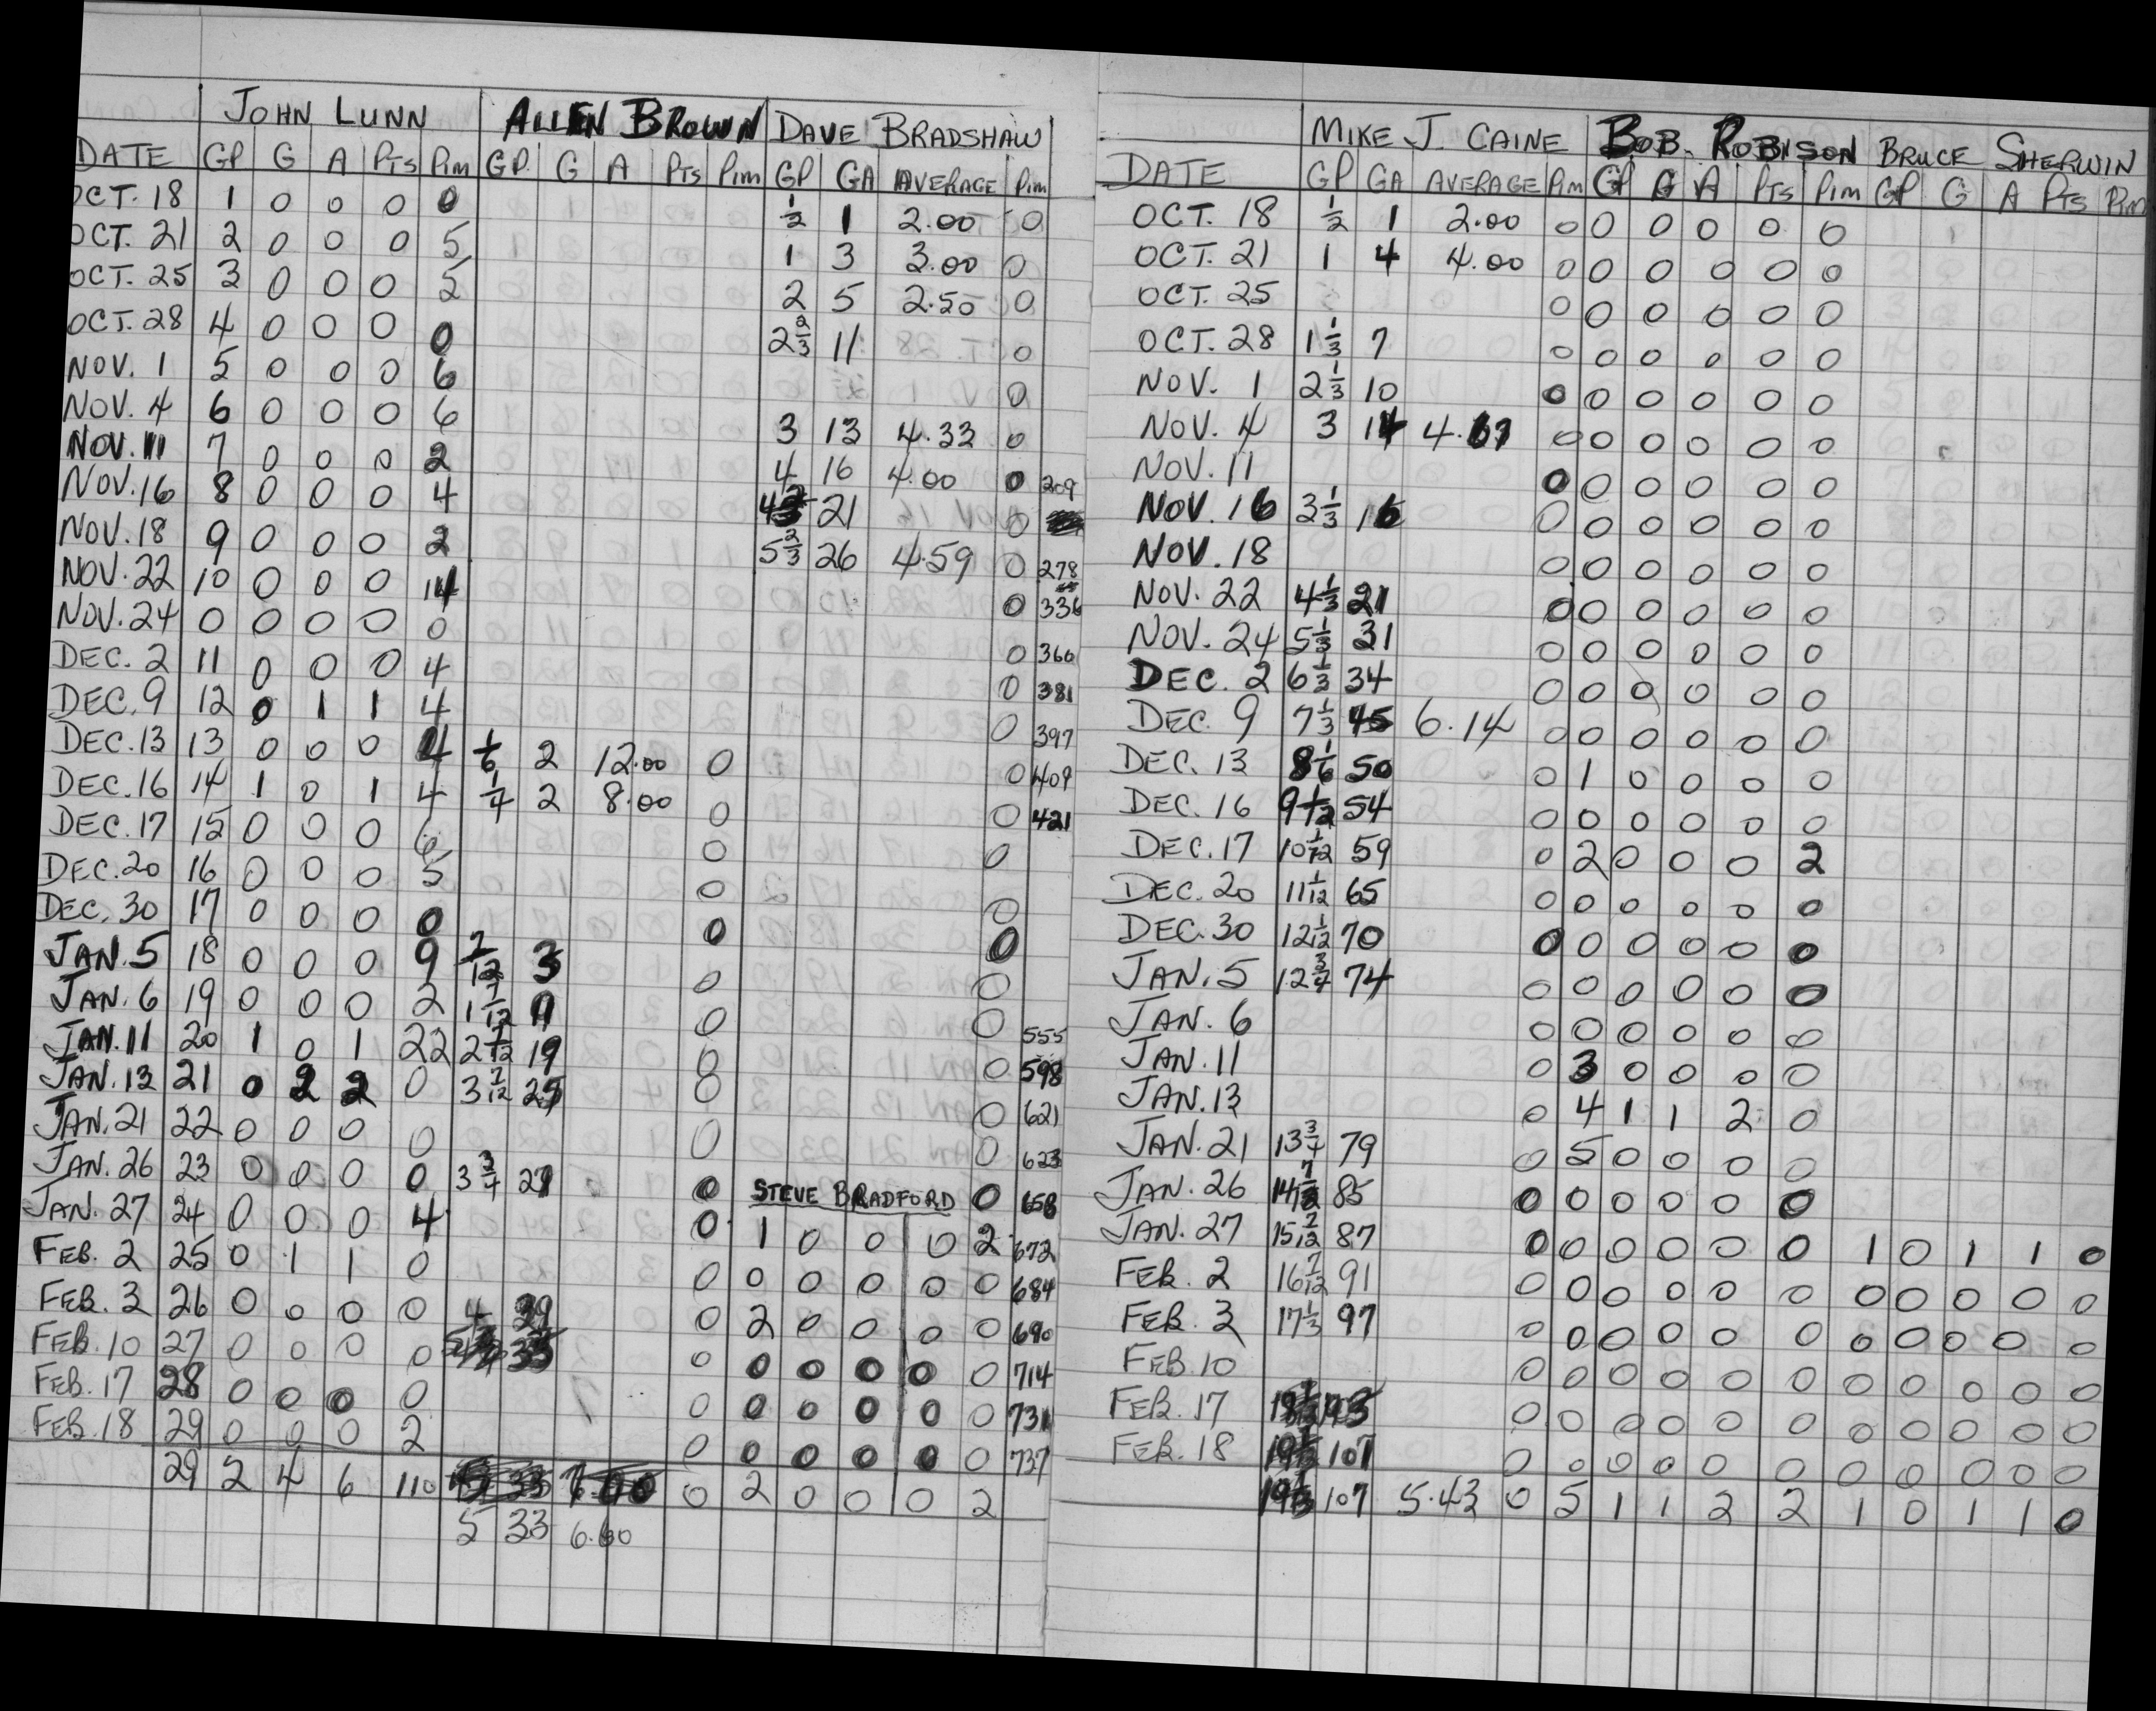 JOHN LUNN ALLEN BROWN DAVE BRADSHAW
DATE GP G A PTS Pim GP. G A PTS Pim GP GA AVERAGE Pim
OCT. 18 1 0 0 0 0 1/2 1 2.00 0
OCT. 21 2 0 0 0 5 1 3 3.00 0
OCT. 25 3 0 0 0 5 2 5 2.50 0
OCT. 28 4 0 0 0 0 2 2/3 11 0
NOV. 1 5 0 0 0 6 0
NOV. 4 6 0 0 0 6 3 13 4.33 0
NOV. 11 7 0 0 0 2 4 16 4.00 0 209
NOV. 16 8 0 0 0 4 21 0
NOV. 18 9 0 0 0 2 5 2/3 26 4.59 0 278
NOV. 22 10 0 0 0 14 0 336
NOV. 24 0 0 0 0 0 0 366
DEC. 2 11 0 0 0 4 0 381
DEC. 9 12 0 1 1 4 0 397
DEC. 13 13 0 0 0 4 1/6 2 12.00 0 0 409
DEC. 16 14 1 0 1 4 1/4 2 8.00 0 0 421
DEC. 17 15 0 0 0 6 0 0
DEC. 20 16 0 0 0 5 0 0
DEC. 30 17 0 0 0 0 0 0
JAN. 5 18 0 0 0 9 7/12 3 0 0
JAN. 6 19 0 0 0 2 1 7/12 11 0 0 555
JAN. 11 20 1 0 1 22 2 7/12 19 0 0 598
JAN. 13 21 0 2 2 0 3 7/12 25 0 0 621
JAN. 21 22 0 0 0 0 0 0 623
JAN. 26 23 0 0 0 0 3 3/4 27 0 STEVE BRADFORD 0 658
JAN. 27 24 0 0 0 4 0 1 0 0 0 2 672
FEB. 2 25 0 1 1 0 0 0 0 0 0 0 684
FEB. 3 26 0 0 0 0 4 29 0 2 0 0 0 0 690
FEB. 10 27 0 0 0 0 33 0 0 0 0 0 0 714
FEB. 17 28 0 0 0 0 0 0 0 0 0 0 731
FEB. 18 29 0 0 0 2 0 0 0 0 0 0 737
29 2 4 6 110 33 0 2 0 0 0 2
5 33 6.60
MIKE J. CAINE BOB. ROBISON BRUCE SHERWIN
DATE GP GA AVERAGE Pim GP G A PTS Pim GP G A PTS Pim
OCT. 18 1/2 1 2.00 0 0 0 0 0 0
OCT. 21 1 4 4.00 0 0 0 0 0 0
OCT. 25 0 0 0 0 0 0
OCT. 28 1 1/3 7 0 0 0 0 0 0
NOV. 1 2 1/3 10 0 0 0 0 0 0
NOV. 4 3 14 4.67 0 0 0 0 0 0
NOV. 11 0 0 0 0 0 0
NOV. 16 3 1/3 16 0 0 0 0 0 0
NOV. 18 0 0 0 0 0 0
NOV. 22 4 1/3 21 0 0 0 0 0 0
NOV. 24 5 1/3 31 0 0 0 0 0 0
DEC. 2 6 1/3 34 0 0 0 0 0 0
DEC. 9 7 1/3 45 6.14 0 0 0 0 0 0
DEC. 13 8 1/6 50 0 1 0 0 0 0
DEC. 16 9 1/12 54 0 0 0 0 0 0
DEC. 17 10 1/12 59 0 2 0 0 0 2
DEC. 20 11 1/12 65 0 0 0 0 0 0
DEC. 30 12 1/12 70 0 0 0 0 0 0
JAN. 5 12 3/4 74 0 0 0 0 0 0
JAN. 6 0 0 0 0 0 0
JAN. 11 0 3 0 0 0 0
JAN. 13 0 4 1 1 2 0
JAN. 21 13 3/4 79 0 5 0 0 0 0
JAN. 26 14 7/12 85 0 0 0 0 0 0
JAN. 27 15 7/12 87 0 0 0 0 0 0 1 0 1 1 0
FEB. 2 16 7/12 91 0 0 0 0 0 0 0 0 0 0 0
FEB. 3 17 1/3 97 0 0 0 0 0 0 0 0 0 0 0
FEB. 10 0 0 0 0 0 0 0 0 0 0 0
FEB. 17 0 0 0 0 0 0 0 0 0 0 0
FEB. 18 107 0 0 0 0 0 0 0 0 0 0 0
107 5.43 0 5 1 1 2 2 1 0 1 1 0